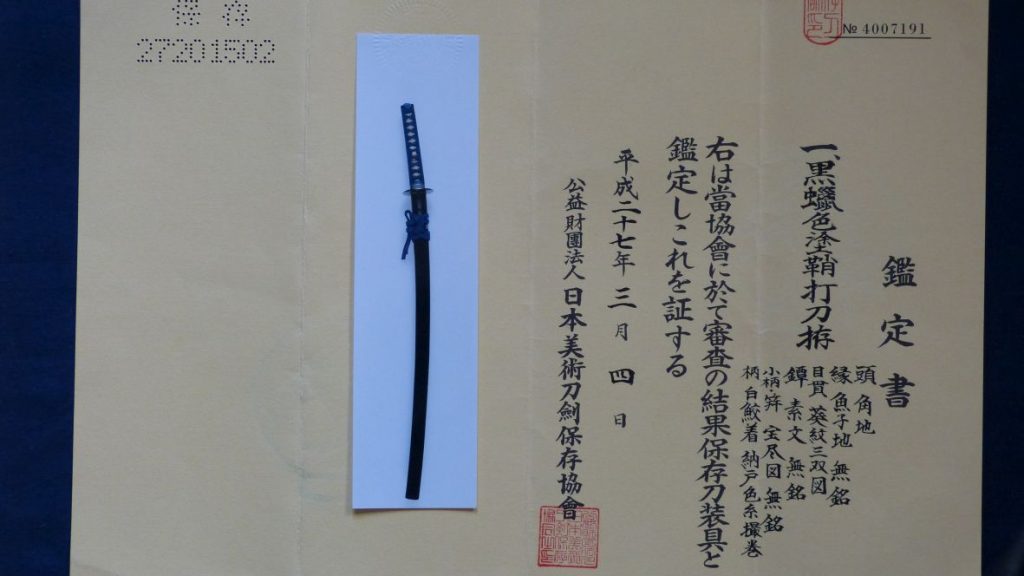 № 4007191
鑑定書
一、黒蠟色塗鞘打刀拵
頭 角地
縁 魚子地 無銘
目貫 葵紋三双図
鐔 素文 無銘
小柄・笄 宝尽図 無銘
柄 白鮫着 納戸色糸撮巻
右は當協會に於て審査の結果保存刀装具と
鑑定しこれを証する
平成二十七年三月四日
公益財團法人 日本美術刀劍保存協會
保存
27201502